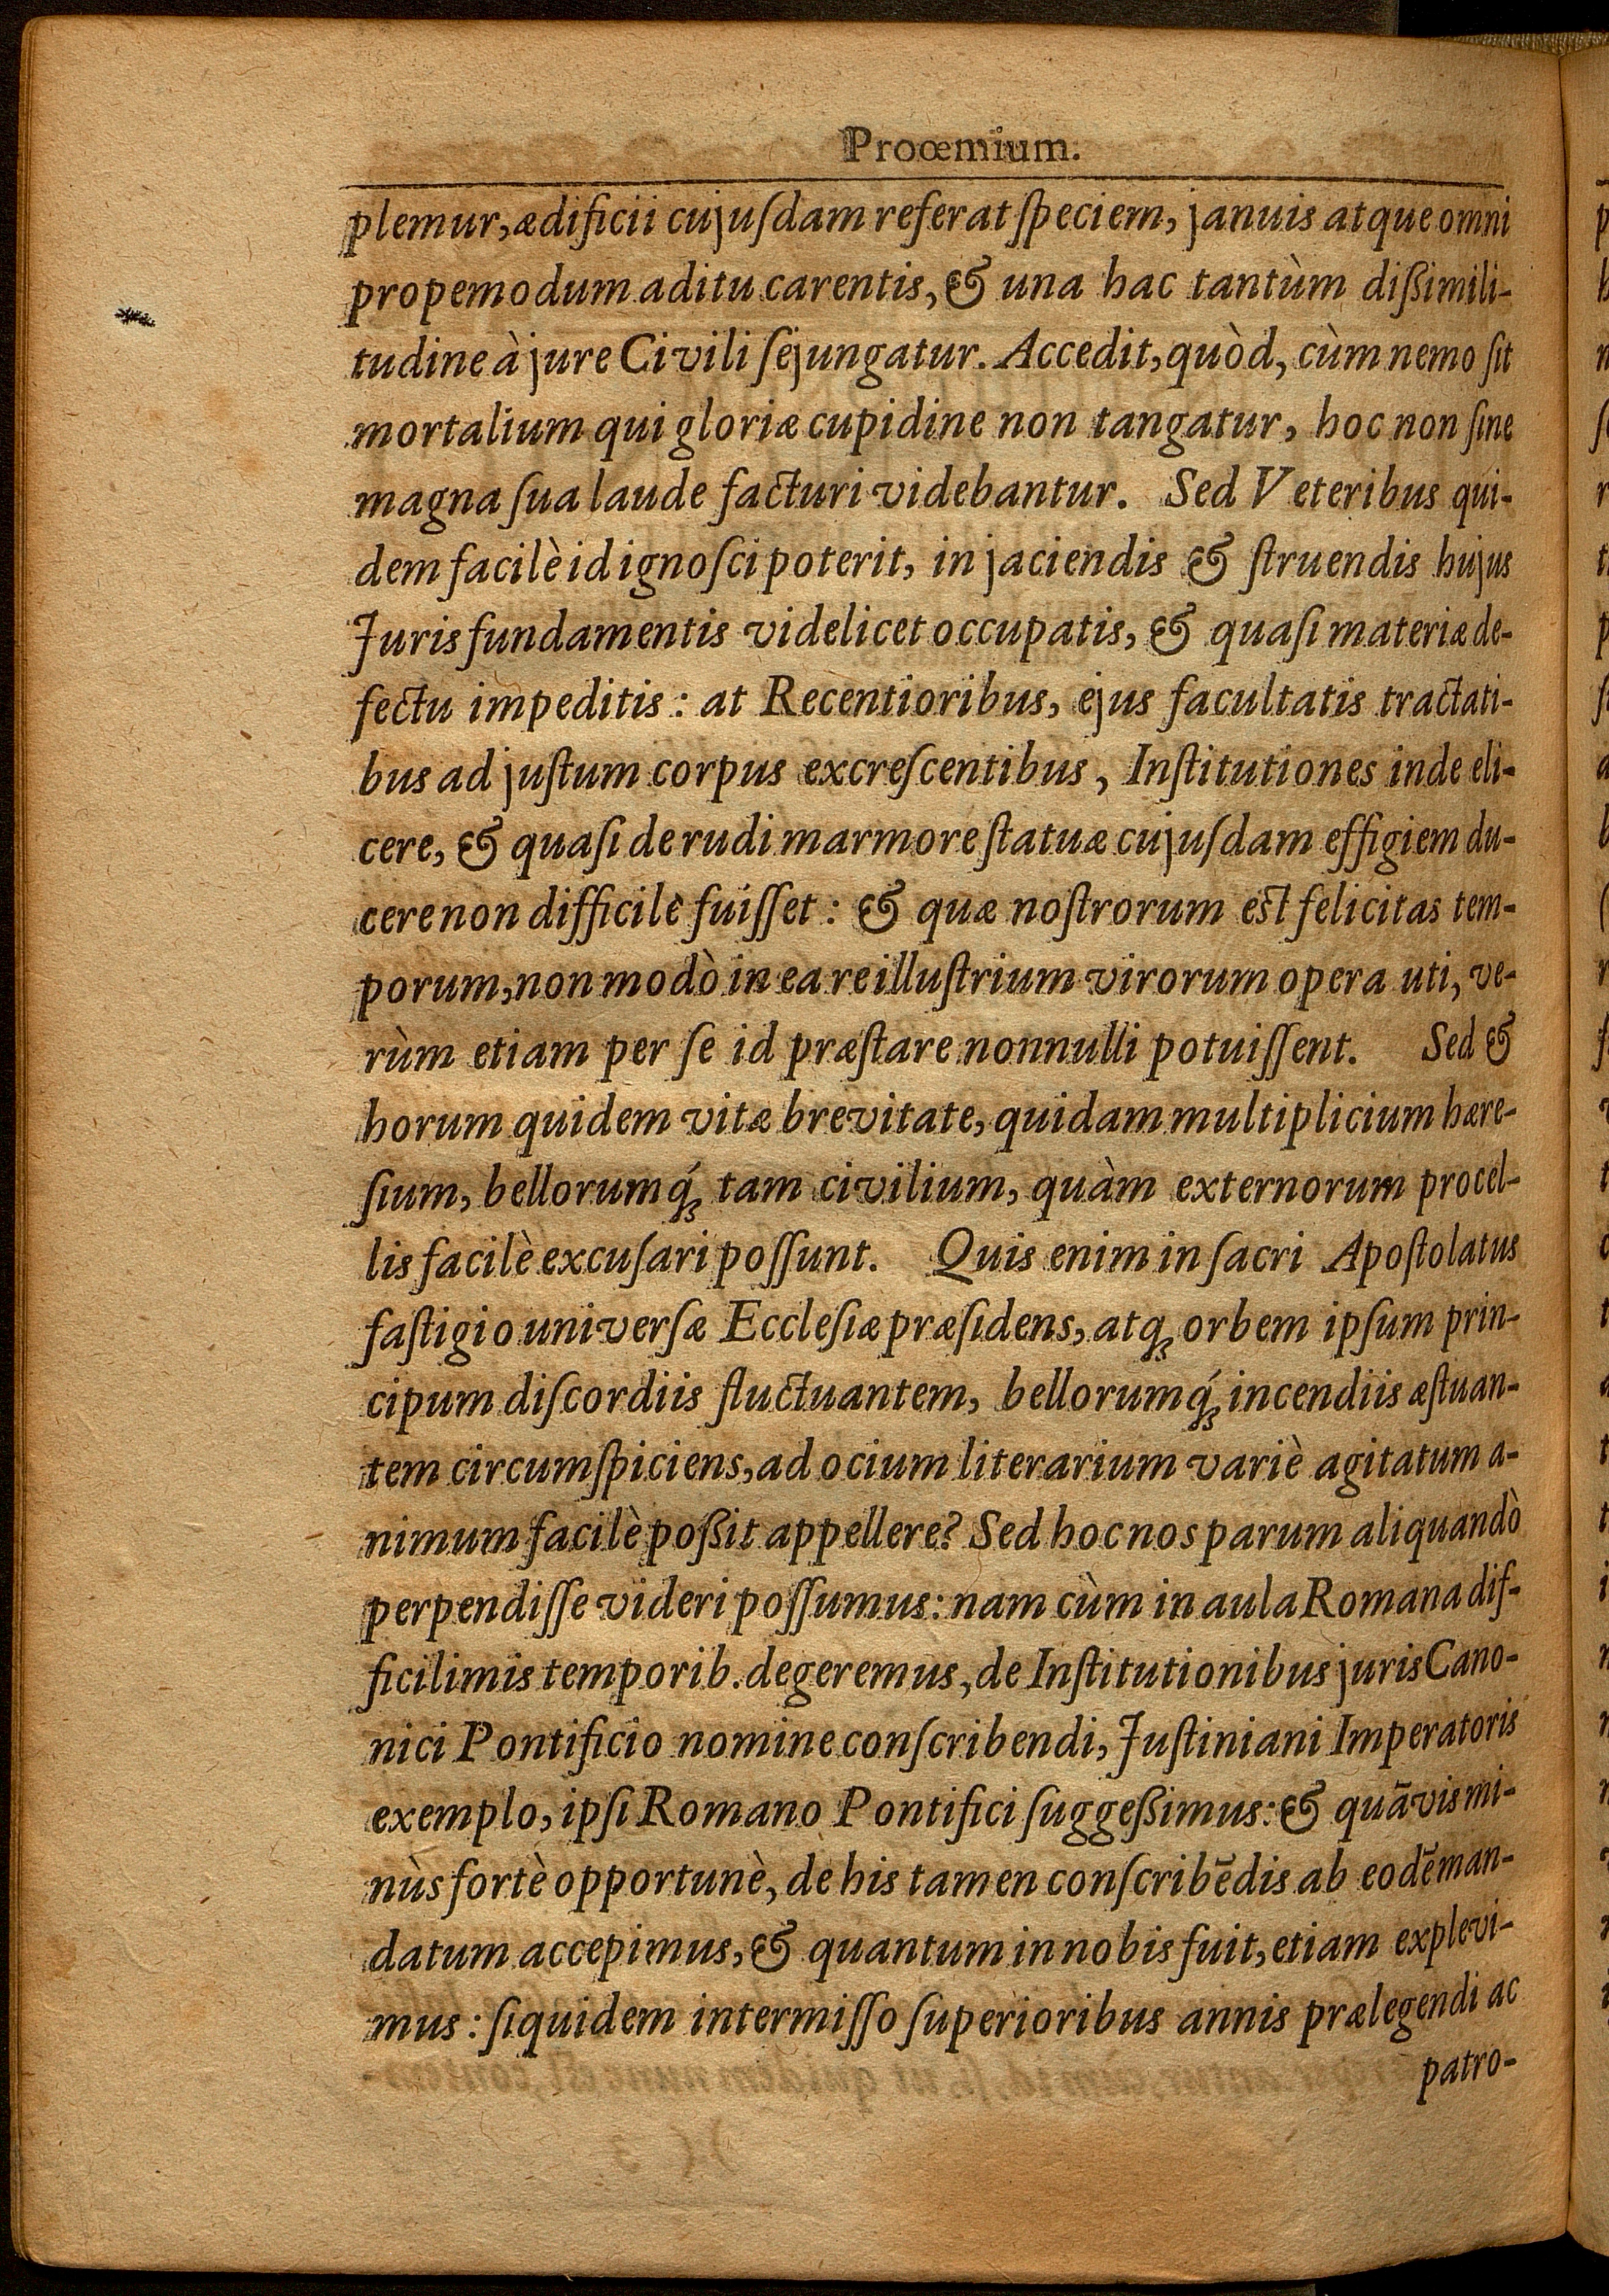 Proœmium.
plemur, ædificii cujuſdam referat ſpeciem, januis atque omni
propemodum aditu carentis, & una hac tantùm diſsimili-
tudine à jure Civili ſejungatur. Accedit, quòd, cùm nemo ſit
mortalium qui gloriæ cupidine non tangatur, hoc non ſine
magna ſua laude facturi videbantur. Sed Veteribus qui-
dem facilè id ignoſci poterit, in jaciendis & ſtruendis hujus
Juris fundamentis videlicet occupatis, & quaſi materiæ de-
fectu impeditis: at Recentioribus, ejus facultatis tractati-
bus ad juſtum corpus excreſcentibus, Inſtitutiones inde eli-
cere, & quaſi de rudi marmore ſtatuæ cujuſdam effigiem du-
cere non difficilè fuiſſet: & quæ noſtrorum eſt felicitas tem-
porum, non modò in ea re illuſtrium virorum opera uti, ve-
rùm etiam per ſe id præſtare nonnulli potuiſſent. Sed &
horum quidem vitæ brevitate, quidam multiplicium hære-
ſium, bellorumq́ꝫ tam civilium, quàm externorum procel-
lis facilè excuſari poſſunt. Quis enim in ſacri Apoſtolatus
faſtigio univerſæ Eccleſiæ præſidens, atqꝫ orbem ipſum prin-
cipum diſcordiis fluctuantem, bellorumq́ꝫ incendiis æſtuan-
tem circumſpiciens, ad ocium literarium variè agitatum a-
nimum facilè poſsit appellere? Sed hoc nos parum aliquandò
perpendiſſe videri poſſumus: nam cùm in aula Romana dif-
ficilimis temporib. degeremus, de Inſtitutionibus juris Cano-
nici Pontificio nomine conſcribendi, Juſtiniani Imperatoris
exemplo, ipſi Romano Pontifici ſuggeſsimus: & quāvis mi-
nùs fortè opportunè, de his tamen conſcribēdis ab eodē man-
datum accepimus, & quantum in nobis fuit, etiam explevi-
mus: ſiquidem intermiſſo ſuperioribus annis prælegendi ac
patro-